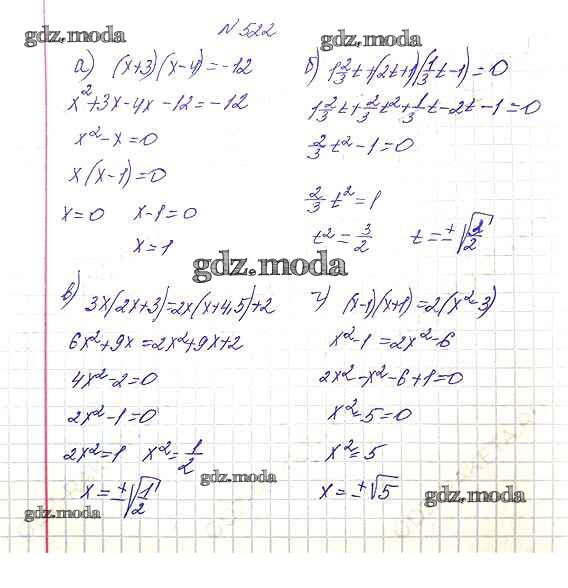 № 522
gdz.moda
gdz.moda
а) (x+3)(x-4)=-12
x²+3x-4x-12=-12
x²-x=0
x(x-1)=0
x=0 x-1=0
x=1
б) 1 2/3 t+(2t+1)(1/3 t-1)=0
1 2/3 t+2/3 t²+1/3 t-2t-1=0
2/3 t²-1=0
2/3 t²=1
t²=3/2 t=±√
gdz.moda
в) 3x(2x+3)=2x(x+4,5)+2
6x²+9x=2x²+9x+2
4x²-2=0
2x²-1=0
2x²=1 x²=1/2
x=±√1/2
г) (x-1)(x+1)=2(x²-3)
x²-1=2x²-6
2x²-x²-6+1=0
x²-5=0
x²=5
x=±√5
gdz.moda
gdz.moda
gdz.moda